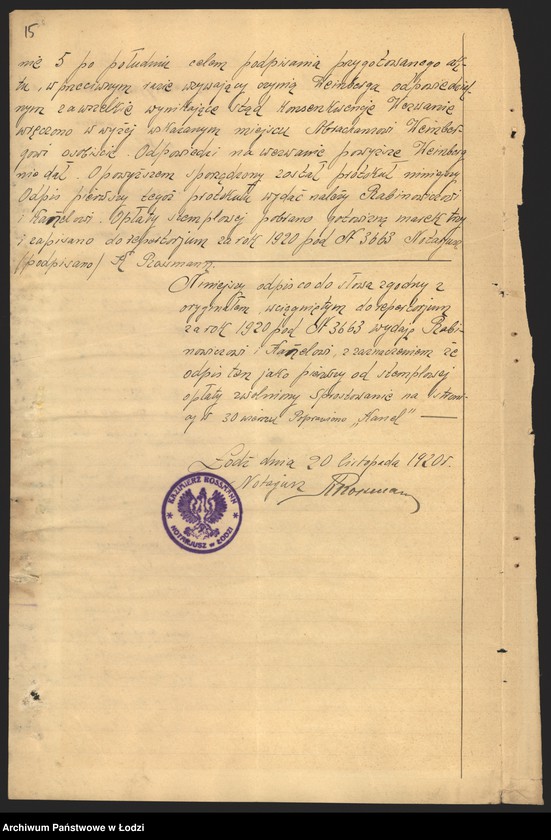 15
nie 5 po południu celem podpisania przygotowanego ak-
tu, w przeciwnym razie wzywający czynią Weinberga odpowiedzial-
nym za wszelkie wynikające stąd konsekwencje Wezwanie
wręczono w wyżej wskazanym miejscu Abrachamowi Weinber-
gowi osobiście. Odpowiedzi na wezwanie powyższe Weinberg
nie dał. O powyższem sporządzony został protokuł niniejszy
Odpis pierwszy tegoż protokułu wydać należy Rabinowiczowi
i Kanelowi. Opłaty stemplowej pobrano gotówizną marek trzy
i zapisano do repertorjum za rok 1920 pod № 3663 Notarjusz
/podpisano/ K Rossmann.
Niniejszy odpis co do słowa zgodny z
oryginałem, wciągniętym do repertorjum
za rok 1920 pod № 3663 wydaję Rabi-
nowiczowi i Kanelowi, z zaznaczeniem że
odpis ten jako pierwszy od stemplowej
opłaty zwolniony Sprostowanie na stroni-
cy w 30 wierszu Poprawiono „Kanel"
Łódź dnia 20 listopada 1920 r.
Notarjusz KRossmann
KAZIMIERZ ROSSMANN
NOTARJUSZ w ŁODZI
Archiwum Państwowe w Łodzi